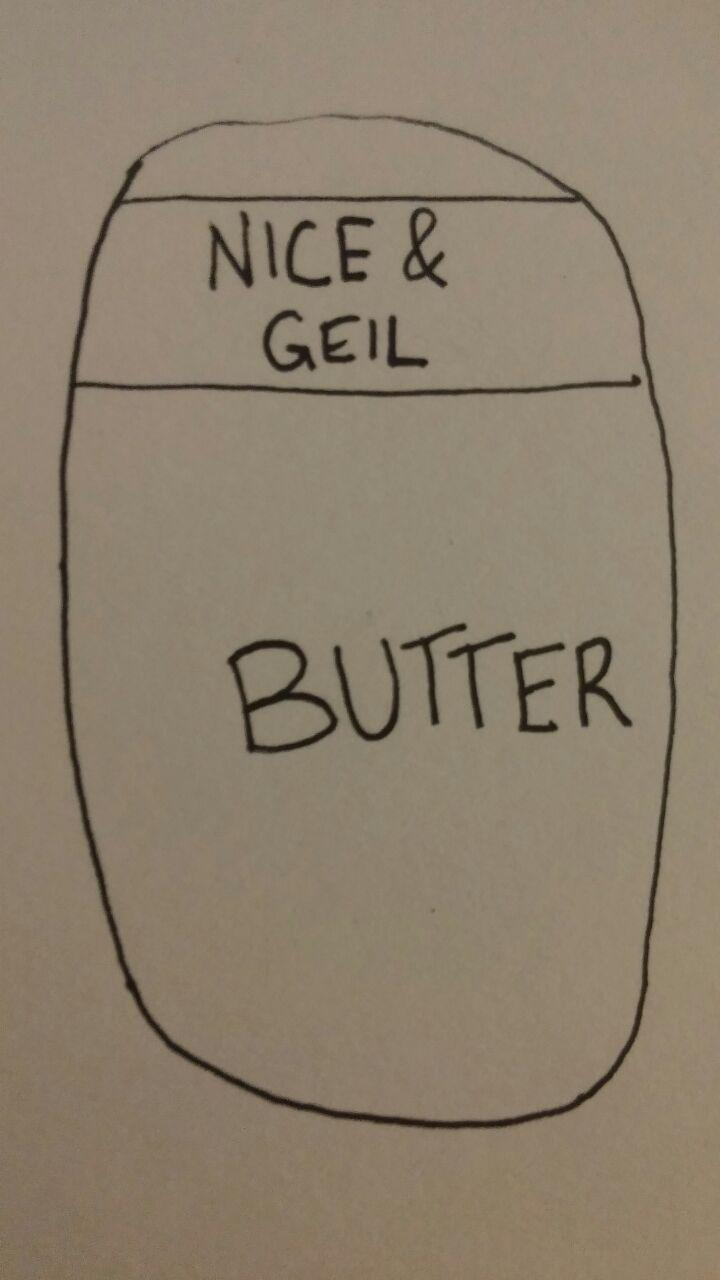 NICE &
GEIL
BUTTER